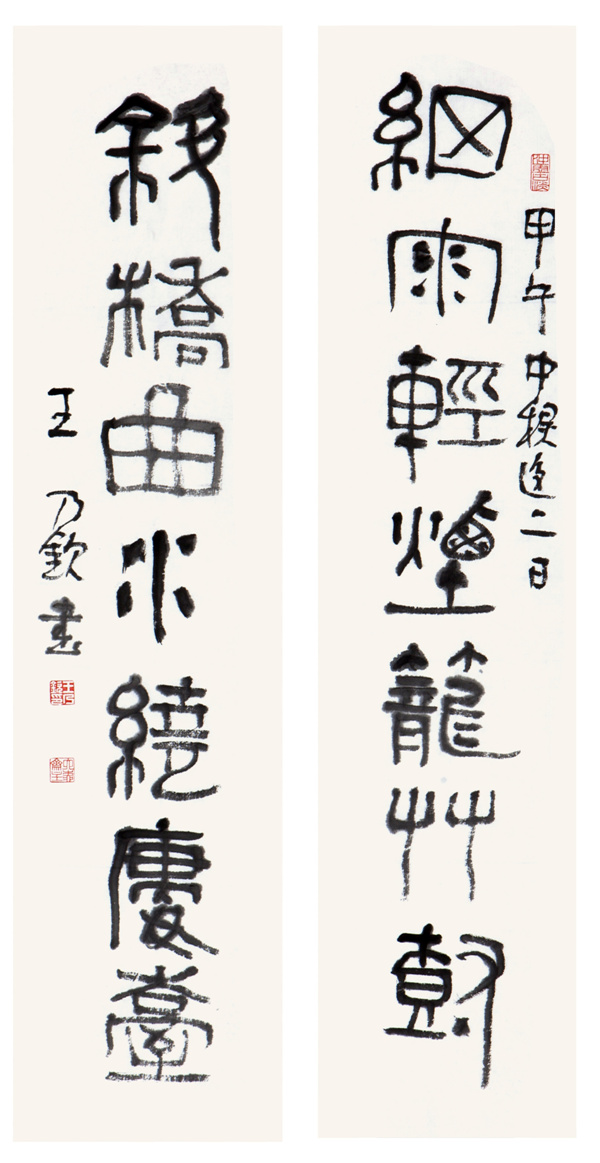 甲午中秋後二日
細雨輕煙籠艸尌
斜橋曲水繞廔臺
王乃欽書